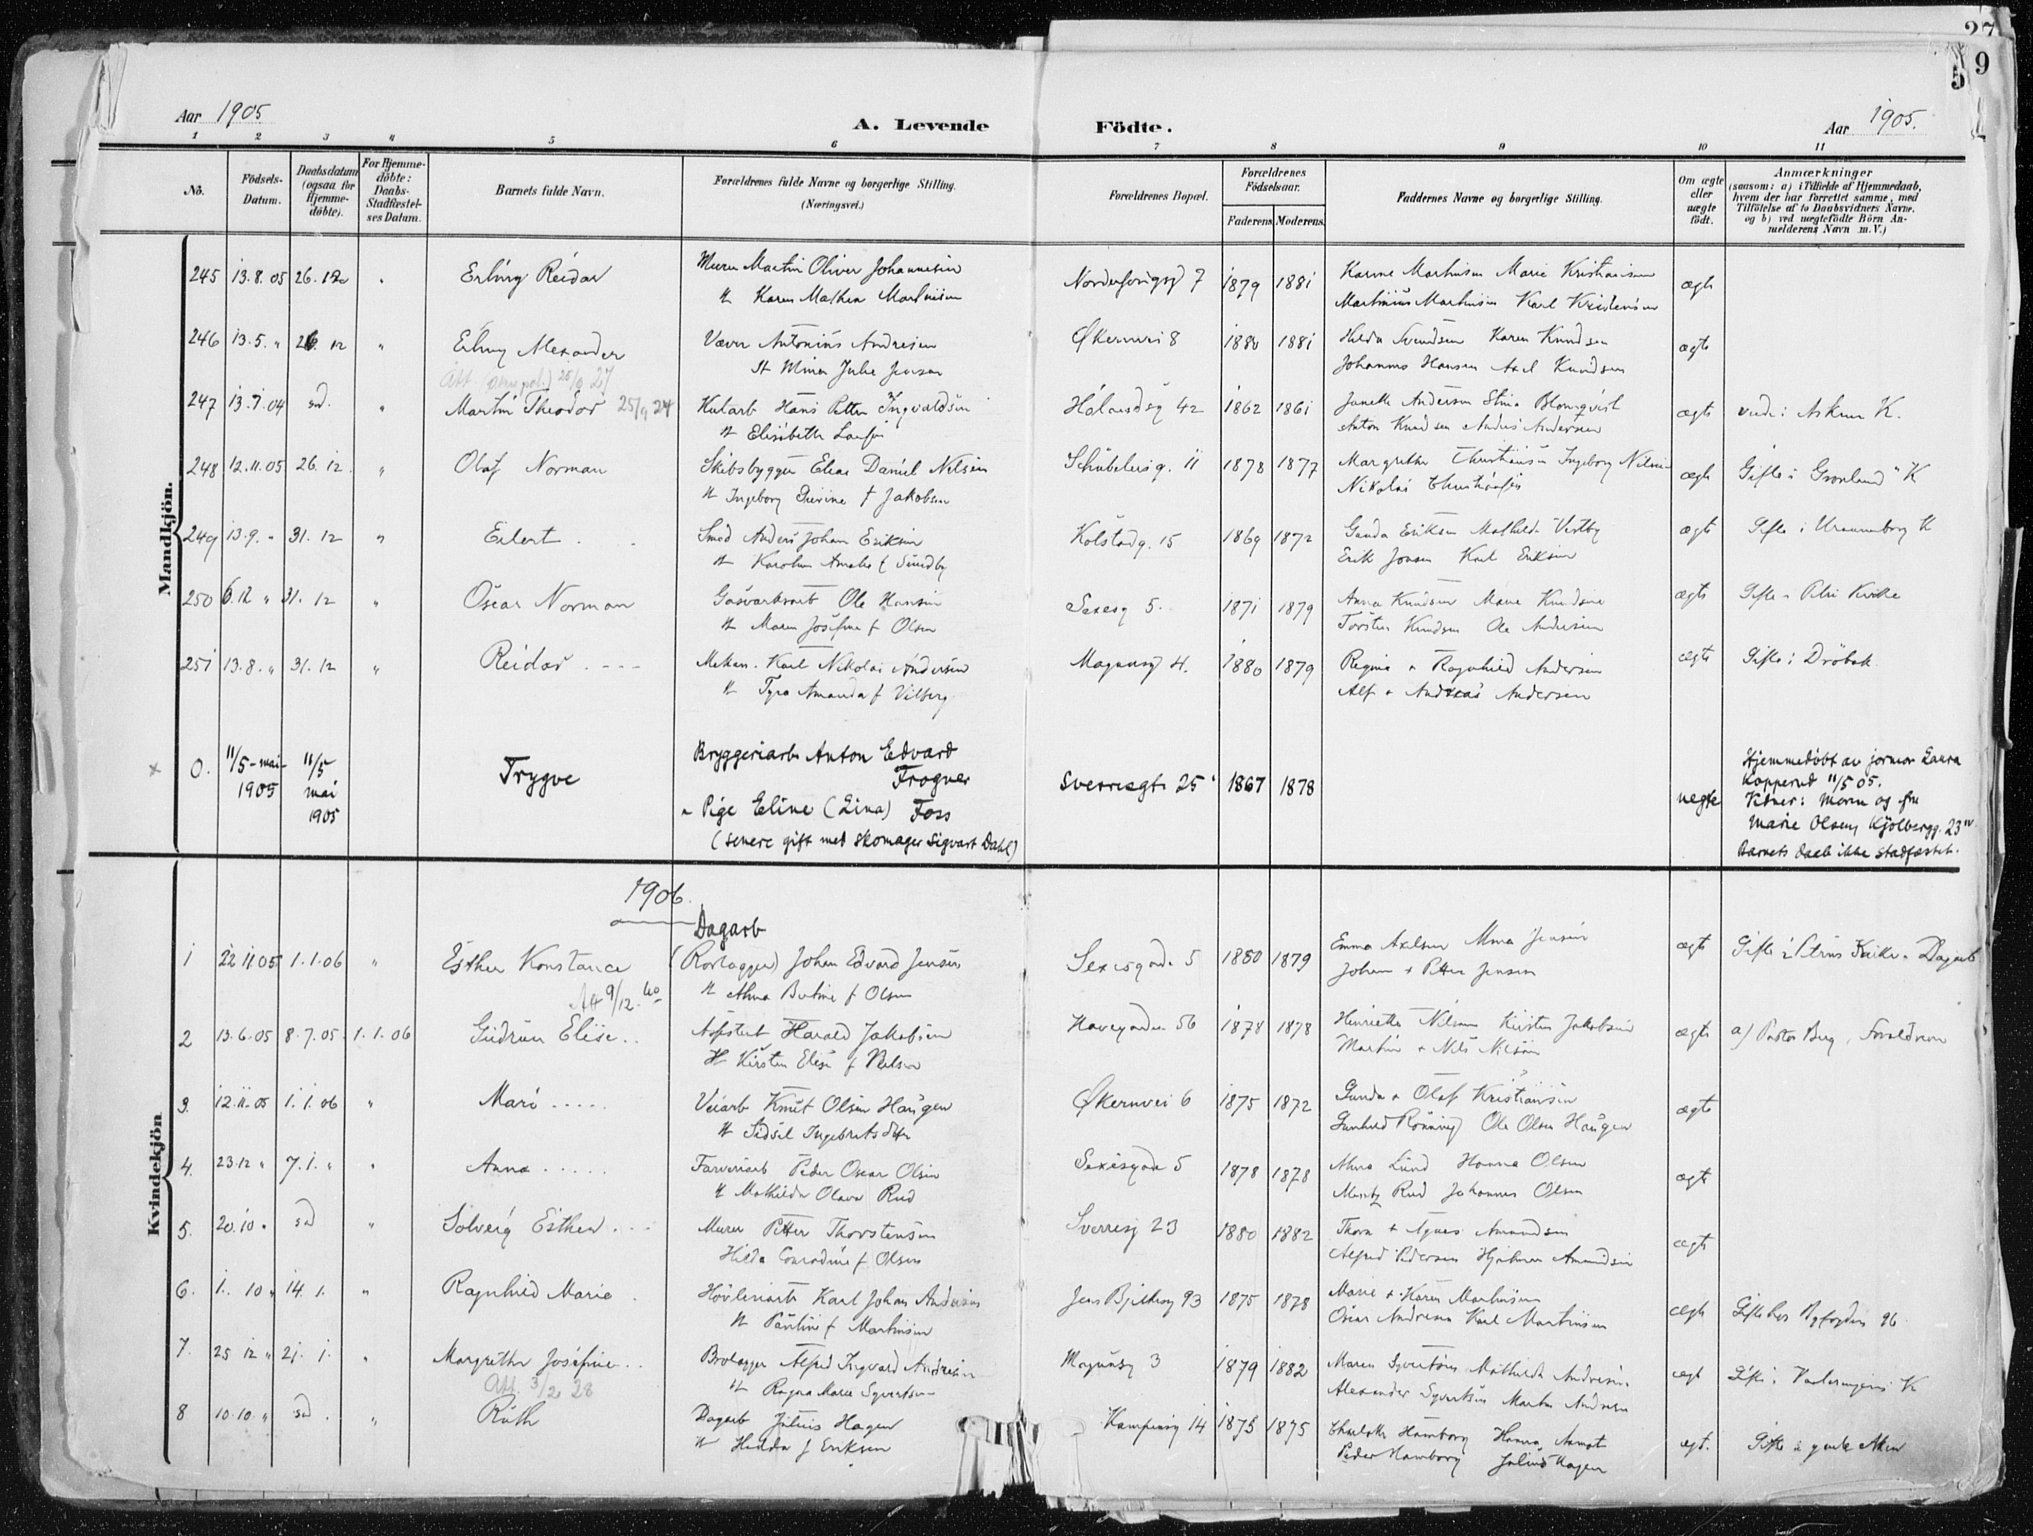 27
9
5
Aar 1905
A. Levende Födte.
Aar 1905.
1 2 3 4 5 6 7 8 9 10 11
Nô.
Födsels-Datum.
Daabsdatum (ogsaa for Hjemme-döbte).
For Hjemme-döbte: Daabs-Stadfæstel-ses Datum.
Barnets fulde Navn.
Forældrenes fulde Navne og borgerlige Stilling.
(Næringsvei.)
Forældrenes Bopæl.
Forældrenes Födselsaar.
Faderens Moderens
Faddernes Navne og borgerlige Stilling.
Om ægte eller uægte födt.
Anmærkninger
(saasom: a) i Tilfælde af Hjemmedaab, hvem der har forrettet samme, med Tilföielse af to Daabsvidners Navne, og b) ved uægtefödte Börn An-melderens Navn m.V.)
Mandkjön.
245 13.8.05 26.12 " Erling Reidar Murer Martin Oliver Johannesen 7 1879 1881 Karine Martinsen Marie Kristiansen ægte
Karen Mathea Martinsen Martinius Martinsen Karl Kristensen
246 13.5. " 26. 12 " Erling Alexander Væver Antonius Andresen Økernvei 8 1880 1881 Hilda Svendsen Karen Knudsen ægte
Mina Julie Jensen Johannes Hansen Axel Knudsen
247 13.7.04 sd. " Martin Theodor 25/9 24 Hans Petter Ingvaldsen 42 1862 1861 Andersen Stina Blomqvist ægte
Elisabeth Anton Knudsen Andersen
248 12.11.05 26.12. " Olaf Norman Skibsbygger Elias Daniel Nelsen Schübelersg. 11 1878 1877 Margrethe Christiansen Ingeborg Gifte i Grönland K ægte
Ingeborg f Jakobsen Nikolai
249 13.9. " 31. 12 " Eilert Smed Anders Johan Eriksen Kolstadg. 15 1869 1872 Gunda Eriksen Mathilde Vestby ægte Gifte i Uranienborg K
Karoline Amalie f Sundby Erik Jonsen Karl Eriksen
250 6.12 " 31. 12 " Oscar Norman Gasværksarb Ole Hansen Sexesg 5. 1871 1879 Anna Knudsen Marie Knudsen ægte Gifte i Petri Kirke
Maren Josefine f Olsen Torsten Knudsen Ole Andersen
251 13.8. " 31. 12 " Reidar Mekan. Karl Nikolai Andersen Magnusg 4. 1880 1879 Regine + Ragnhild Andersen ægte Gifte i Dröbak
Tyra Amanda f Vilberg Alf + Andreas Andersen
x 0. 11/5-mai-1905 11/5 mai 1905 Trygve Bryggeriarb Anton Edvard Frogner Sverresgt 25 1867 1878 uegte
- Pige Eline (Lina) Foss
(senere gift med skomager Sigvart Dahl)
Hjemmedöbt av jormor Laura
Kopperud 11/5 05.
Vidner: Moren og fru
Marie Olsen, Kjölbergg. 23 IV
Barnets daab ikke stadfæstet.
Kvindekjön
1906.
Dagarb
1 22 11 05 1.1.06 " Esther Konstance (Rorlægger) Johan Edvard Jensen Sexesgade 5 1880 1879 Emma Axelsen Jensen ægte Gifte i Petrus Kirke
Alma f Olsen Johan + Petter Jensen
Att 9/12.40
2 13.6.05 8.7.05. 1.1.06 Gudrun Elise Harald Jakobsen Havegaden 56 1878 1878 Henriette Nilsen Kirsten Jakobsen ægte a) Pastor Berg, Foreldrene
Kirsten Elise f Nelsen Martin + Nils Nilsen
3. 12.11.05 1.1.06 " Mari Veiarb Knut Olsen Haugen Økernvei 6 1875 1872 Gunda + Olaf Kristiansen ægte
Sidsel Ingebretsdtr Gunhild Rönning Ole Olsen Haugen
4. 23.12 " 7.1. " " Anna Farveriarb Peder Oscar Olsen Sexesgade 5 1878 1878 Alma Lund Hanna Olsen ægte
Mathilde Olava Rud Moritz Rud Johannes Olsen
5. 20.10 " sd " Solveig Esther Murer Petter Thorstensen Sverresg 23 1880 1882 Thora + Agnes Amundsen ægte
Hilda Conradine f Olsen Alfred Pedersen Hjalmar Amundsen
6. 1. 10 " 14. 1. " Ragnhild Marie Hövleriarb Karl Johan Andersen Jens Bjelkesg 93 1875 1878 Marie + Karen Martinsen ægte Gifte hos Byfogden 96
Pauline f Martinsen Oscar Andresen Karl Martinsen
7. 25 12 " 21. 1. " Margrethe Josefine Brolægger Alfred Ingvard Andresen Magnusg 3 1879 1882 Maren Syvertsen Mathilde Andresen ægt Gifte i Vaalerengens K
Att. 3/2 28 Ragna Marie Syvertsen Alexander Syvertsen Martin Andresen
8 10.10. " sd. " Ruth Dagarb Julius Hagen Kampensg 14 1875 1875 Charlotte Hamborg Hanna ægt. Gifte i gamle Aker
Hedda f Eriksen Peder Hamborg Julius Hagen